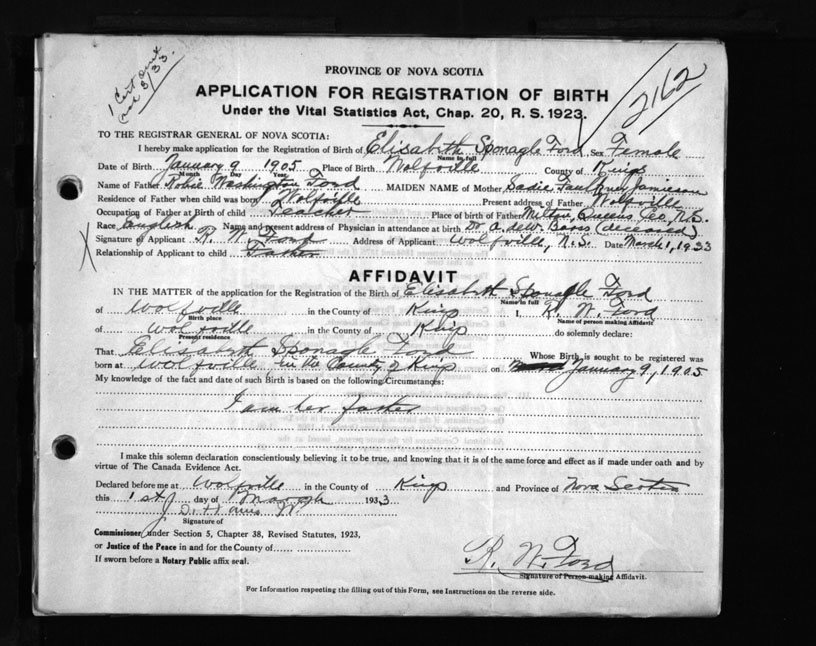 1 Cert sent
3/33.
2162
PROVINCE OF NOVA SCOTIA
APPLICATION FOR REGISTRATION OF BIRTH
Under the Vital Statistics Act, Chap. 20, R. S. 1923.
TO THE REGISTRAR GENERAL OF NOVA SCOTIA:
I hereby make application for the Registration of Birth of Elisabeth Sponagle Ford Sex Female
Name in full
Date of Birth January 9 1905 Place of Birth Wolfville County of Kings
Month Day Year
Name of Father Robie Washington Ford MAIDEN NAME of Mother Sadie Faulkner Jamieson
Residence of Father when child was born Wolfville Present address of Father Wolfville
Occupation of Father at Birth of child Teacher Place of birth of Father Milton, Queens Co., N.S.
Race English Name and present address of Physician in attendance at birth Dr. A. deW. Barss (deceased)
Signature of Applicant R. W. Ford Address of Applicant Wolfville, N.S. Date March 1, 1933
Relationship of Applicant to child Father
AFFIDAVIT
IN THE MATTER of the application for the Registration of the Birth of Elisabeth Sponagle Ford
Name in full
of Wolfville in the County of Kings I, R. W. Ford
Birth place Name of person making Affidavit
of Wolfville in the County of Kings do solemnly declare:
Present residence
That Elisabeth Sponagle Ford Whose Birth is sought to be registered was
born at Wolfville in the County of Kings on January 9, 1905
My knowledge of the fact and date of such Birth is based on the following Circumstances:
I am her father
I make this solemn declaration conscientiously believing it to be true, and knowing that it is of the same force and effect as if made under oath and by
virtue of The Canada Evidence Act.
Declared before me at Wolfville in the County of Kings and Province of Nova Scotia
this 1st day of March 1933
Signature of
Commissioner under Section 5, Chapter 38, Revised Statutes, 1923,
or Justice of the Peace in and for the County of
If sworn before a Notary Public affix seal.
R. W. Ford
Signature of Person making Affidavit.
For Information respecting the filling out of this Form, see Instructions on the reverse side.